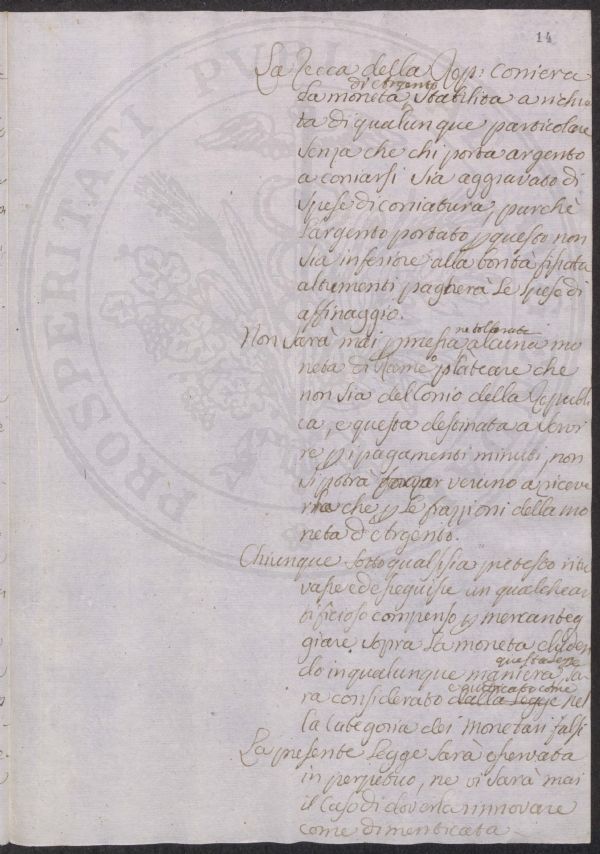 14
La Zecca della Rep: conierà
di Argento
La moneta, stabilita a richies
ta di qualunque particolare
senza che chi porta argento
a coniarsi sia aggravato di
spese di coniatura, purchè
l'argento portato p questo non
sia inferiore alla bontà fissata
altrimenti pagherà le spese di
affinaggio.
Non sarà mai pmessa, ne tollerata
alcuna mo
neta di Rame, o plateale che
non sia del Conio della Repubbli
ca, e questa destinata a servi
re p i pagamenti minuti, non
si potrà forzar veruno a riceve
rla che p le frazzioni della mo
neta d'Argento.
Chiunque sotto qualsisia pretesto ritro
vasse ed eseguisse un qualche ar
tificioso compenso p mercanteg
giare sopra la moneta eluden
do in qualunque maniera
questa legge
sa
rà considerato
e giudicato come
dalla Legge nel
la Categoria dei Monetari falsi
La presente Legge sarà osservata
in perpetuo, ne vi sarà mai
il Caso di doverla rinnovare
come dimenticata
PROSPERITATI PUBLI